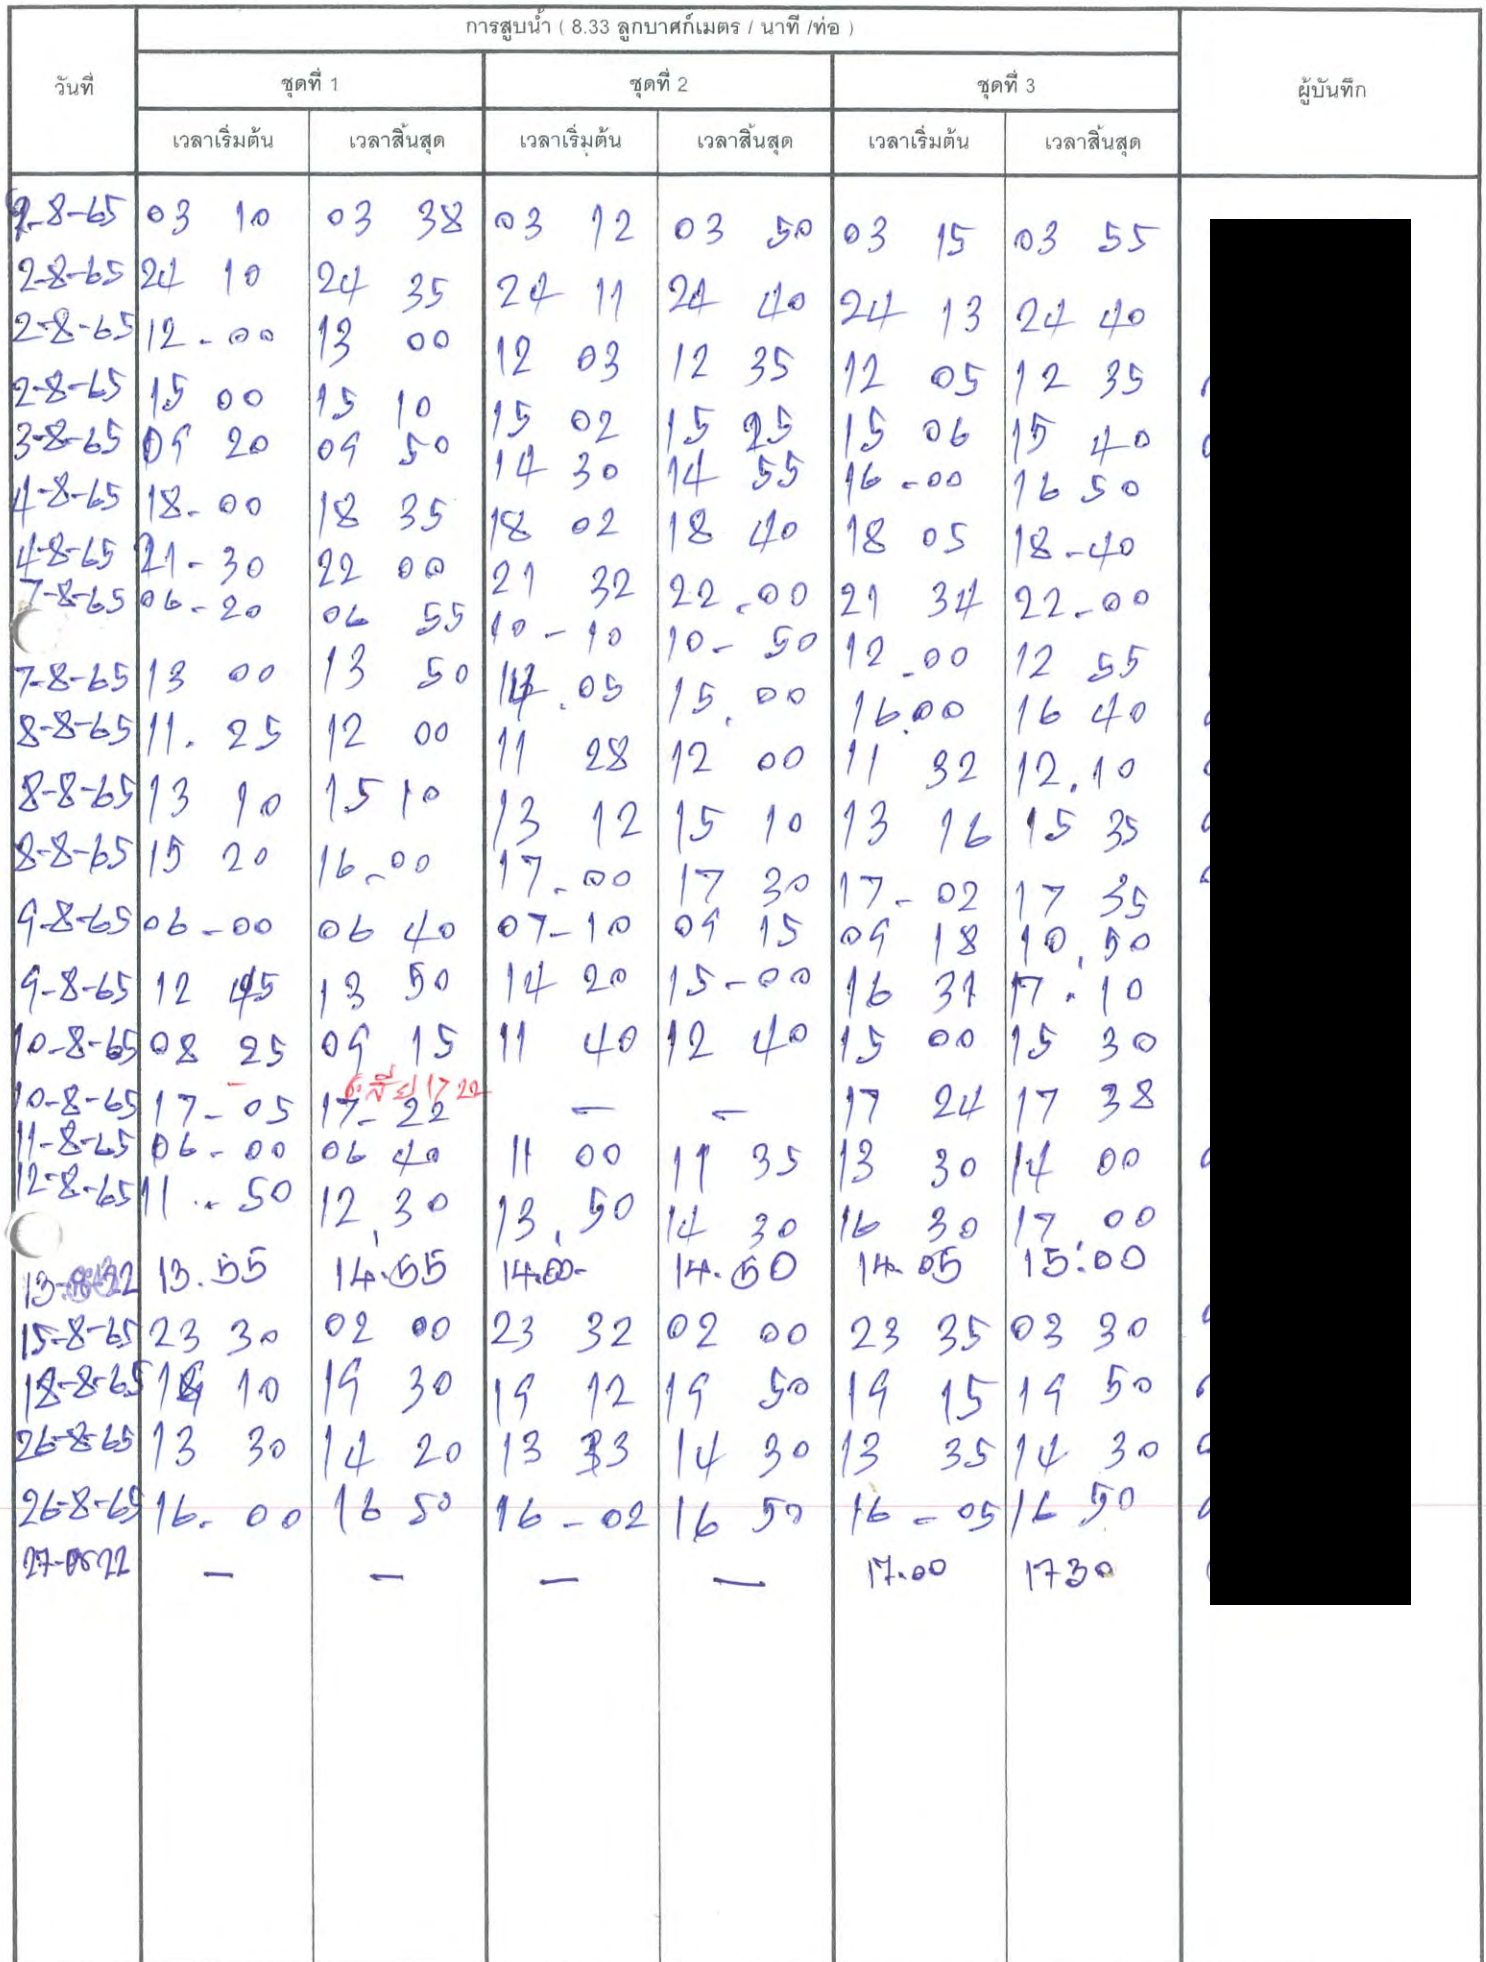 การสูบน้ำ ( 8.33 ลูกบาศก์เมตร / นาที /ท่อ )
วันที่ ชุดที่ 1 ชุดที่ 2 ชุดที่ 3 ผู้บันทึก
เวลาเริ่มต้น เวลาสิ้นสุด เวลาเริ่มต้น เวลาสิ้นสุด เวลาเริ่มต้น เวลาสิ้นสุด
2-8-65 03 10 03 38 03 12 03 50 03 15 03 55
2-8-65 24 10 24 35 24 11 24 40 24 13 24 40
2-8-65 12-00 13 00 12 03 12 35 12 05 12 35
2-8-65 15 00 15 10 15 02 15 25 15 06 15 40
3-8-65 09 20 09 50 14 30 14 55 16-00 16 50
4-8-65 18-00 18 35 18 02 18 40 18 05 18-40
4-8-65 21-30 22 00 21 32 22-00 21 34 22-00
7-8-65 06-20 06 55 10-10 10-50 12-00 12 55
7-8-65 13 00 13 50 14.05 15.00 16.00 16 40
8-8-65 11.25 12 00 11 28 12 00 11 32 12.10
8-8-65 13 10 15 10 13 12 15 10 13 16 15 35
8-8-65 15 20 16-00 17-00 17 30 17-02 17 35
9-8-65 06-00 06 40 07-10 09 15 09 18 10.50
9-8-65 12 45 13 50 14 20 15-00 16 31 17.10
10-8-65 08 25 09 15 11 40 12 40 15 00 15 30
เสีย 17 22
10-8-65 17-05 17-22 - - 17 24 17 38
11-8-65 06-00 06 40 11 00 11 35 13 30 14 00
12-8-65 11-50 12.30 13.50 14 30 16 30 17 00
13.55 14.55 14.00- 14.50 14.05 15:00
15-8-65 23 30 02 00 23 32 02 00 23 35 03 30
18-8-65 19 10 19 30 19 12 19 50 19 15 19 50
26-8-65 13 30 14 20 13 33 14 30 13 35 14 30
26-8-65 16-00 16 50 16-02 16 50 16-05 16 50
27-08-22 - - - - 17.00 17 30